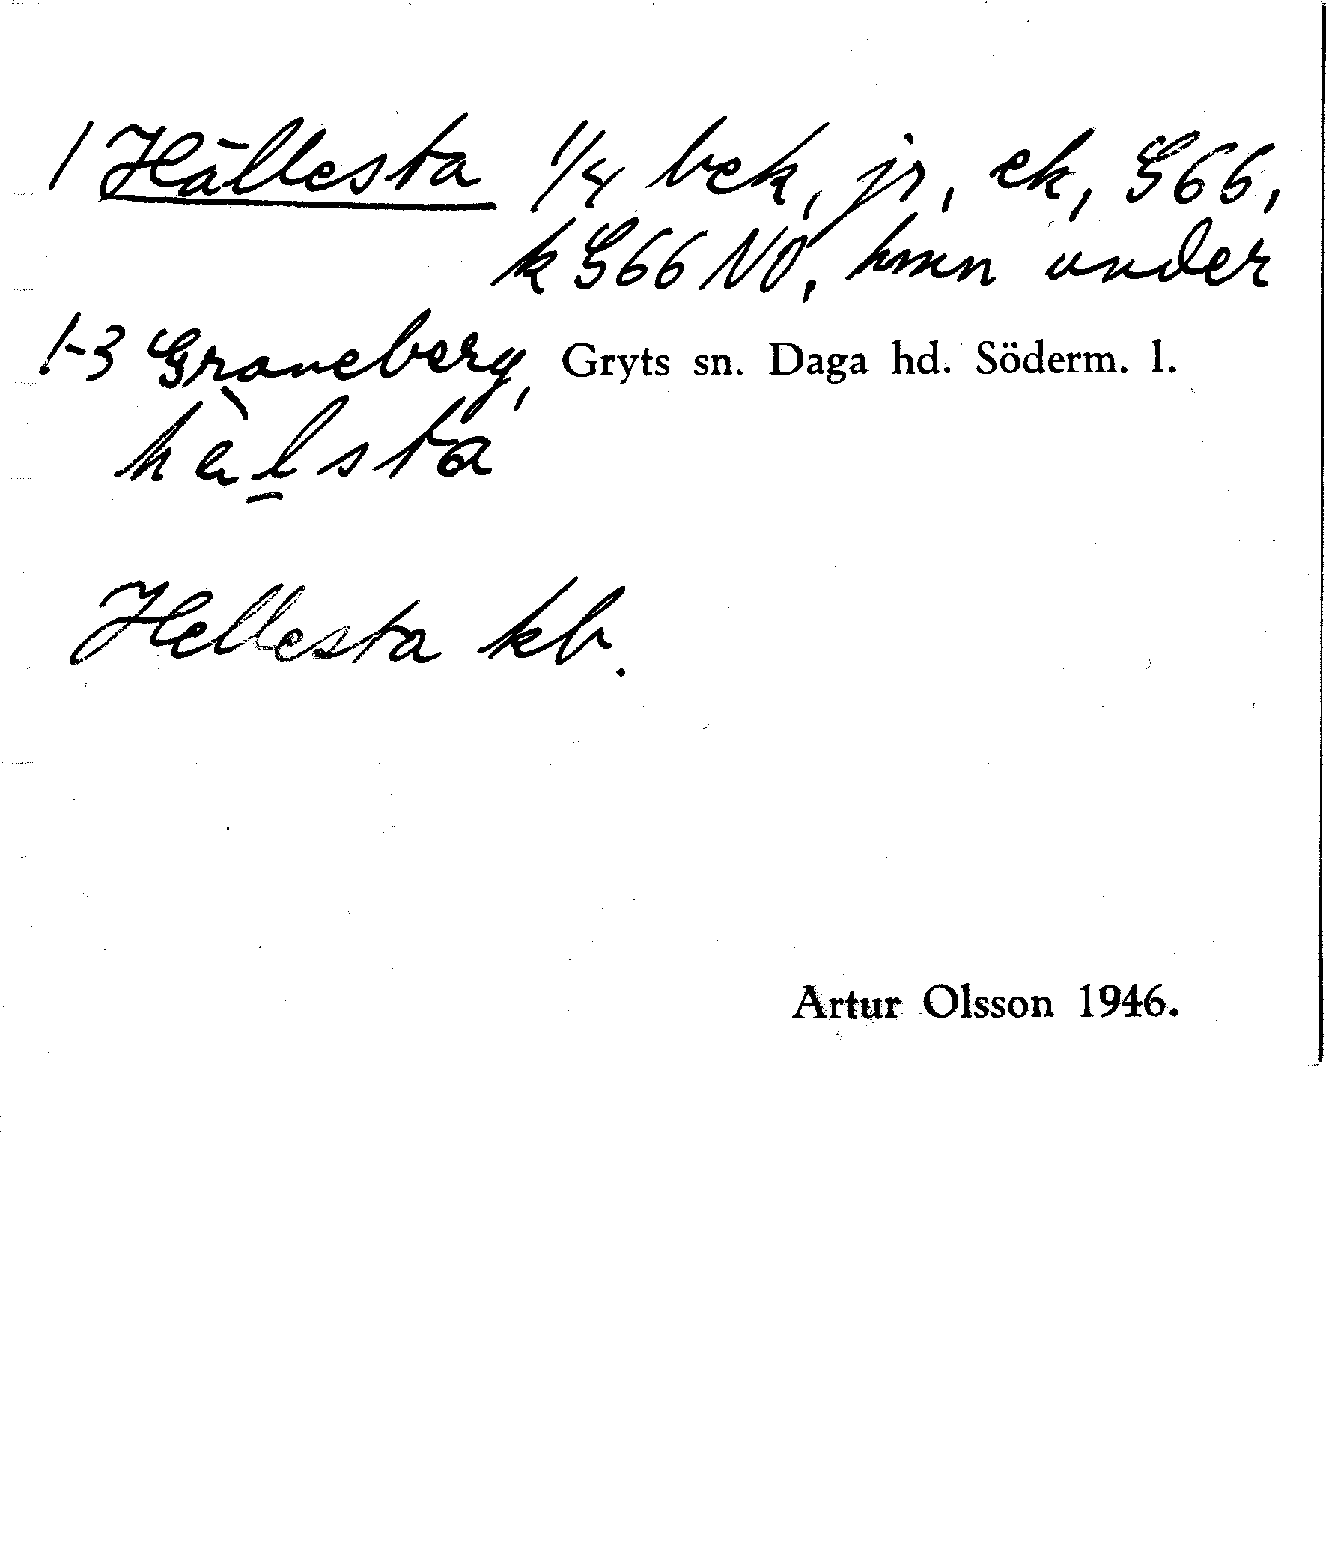 1 Hällesta 1/4 bek, jr, ek, G66,
k G66 NO, hmn under
1-3 Graneberg, Gryts sn. Daga hd. Söderm. l.
hàlsta
Hellesta kb.
Artur Olsson 1946.